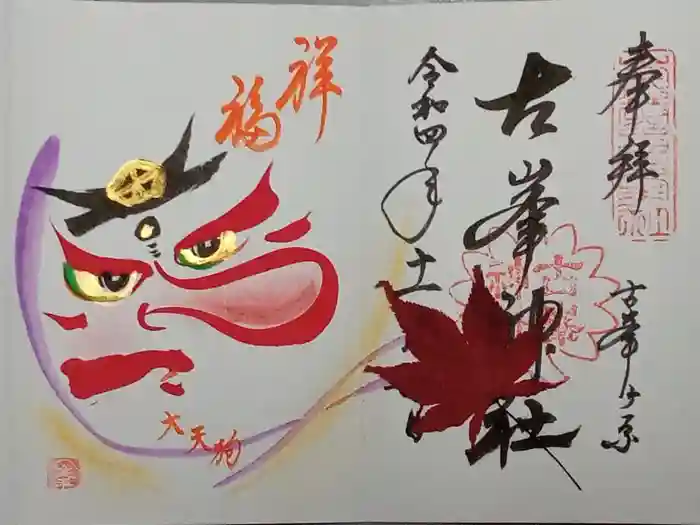 奉拝
古峯ヶ原
古峯神社
令和四年十一
日
祥福
大天狗